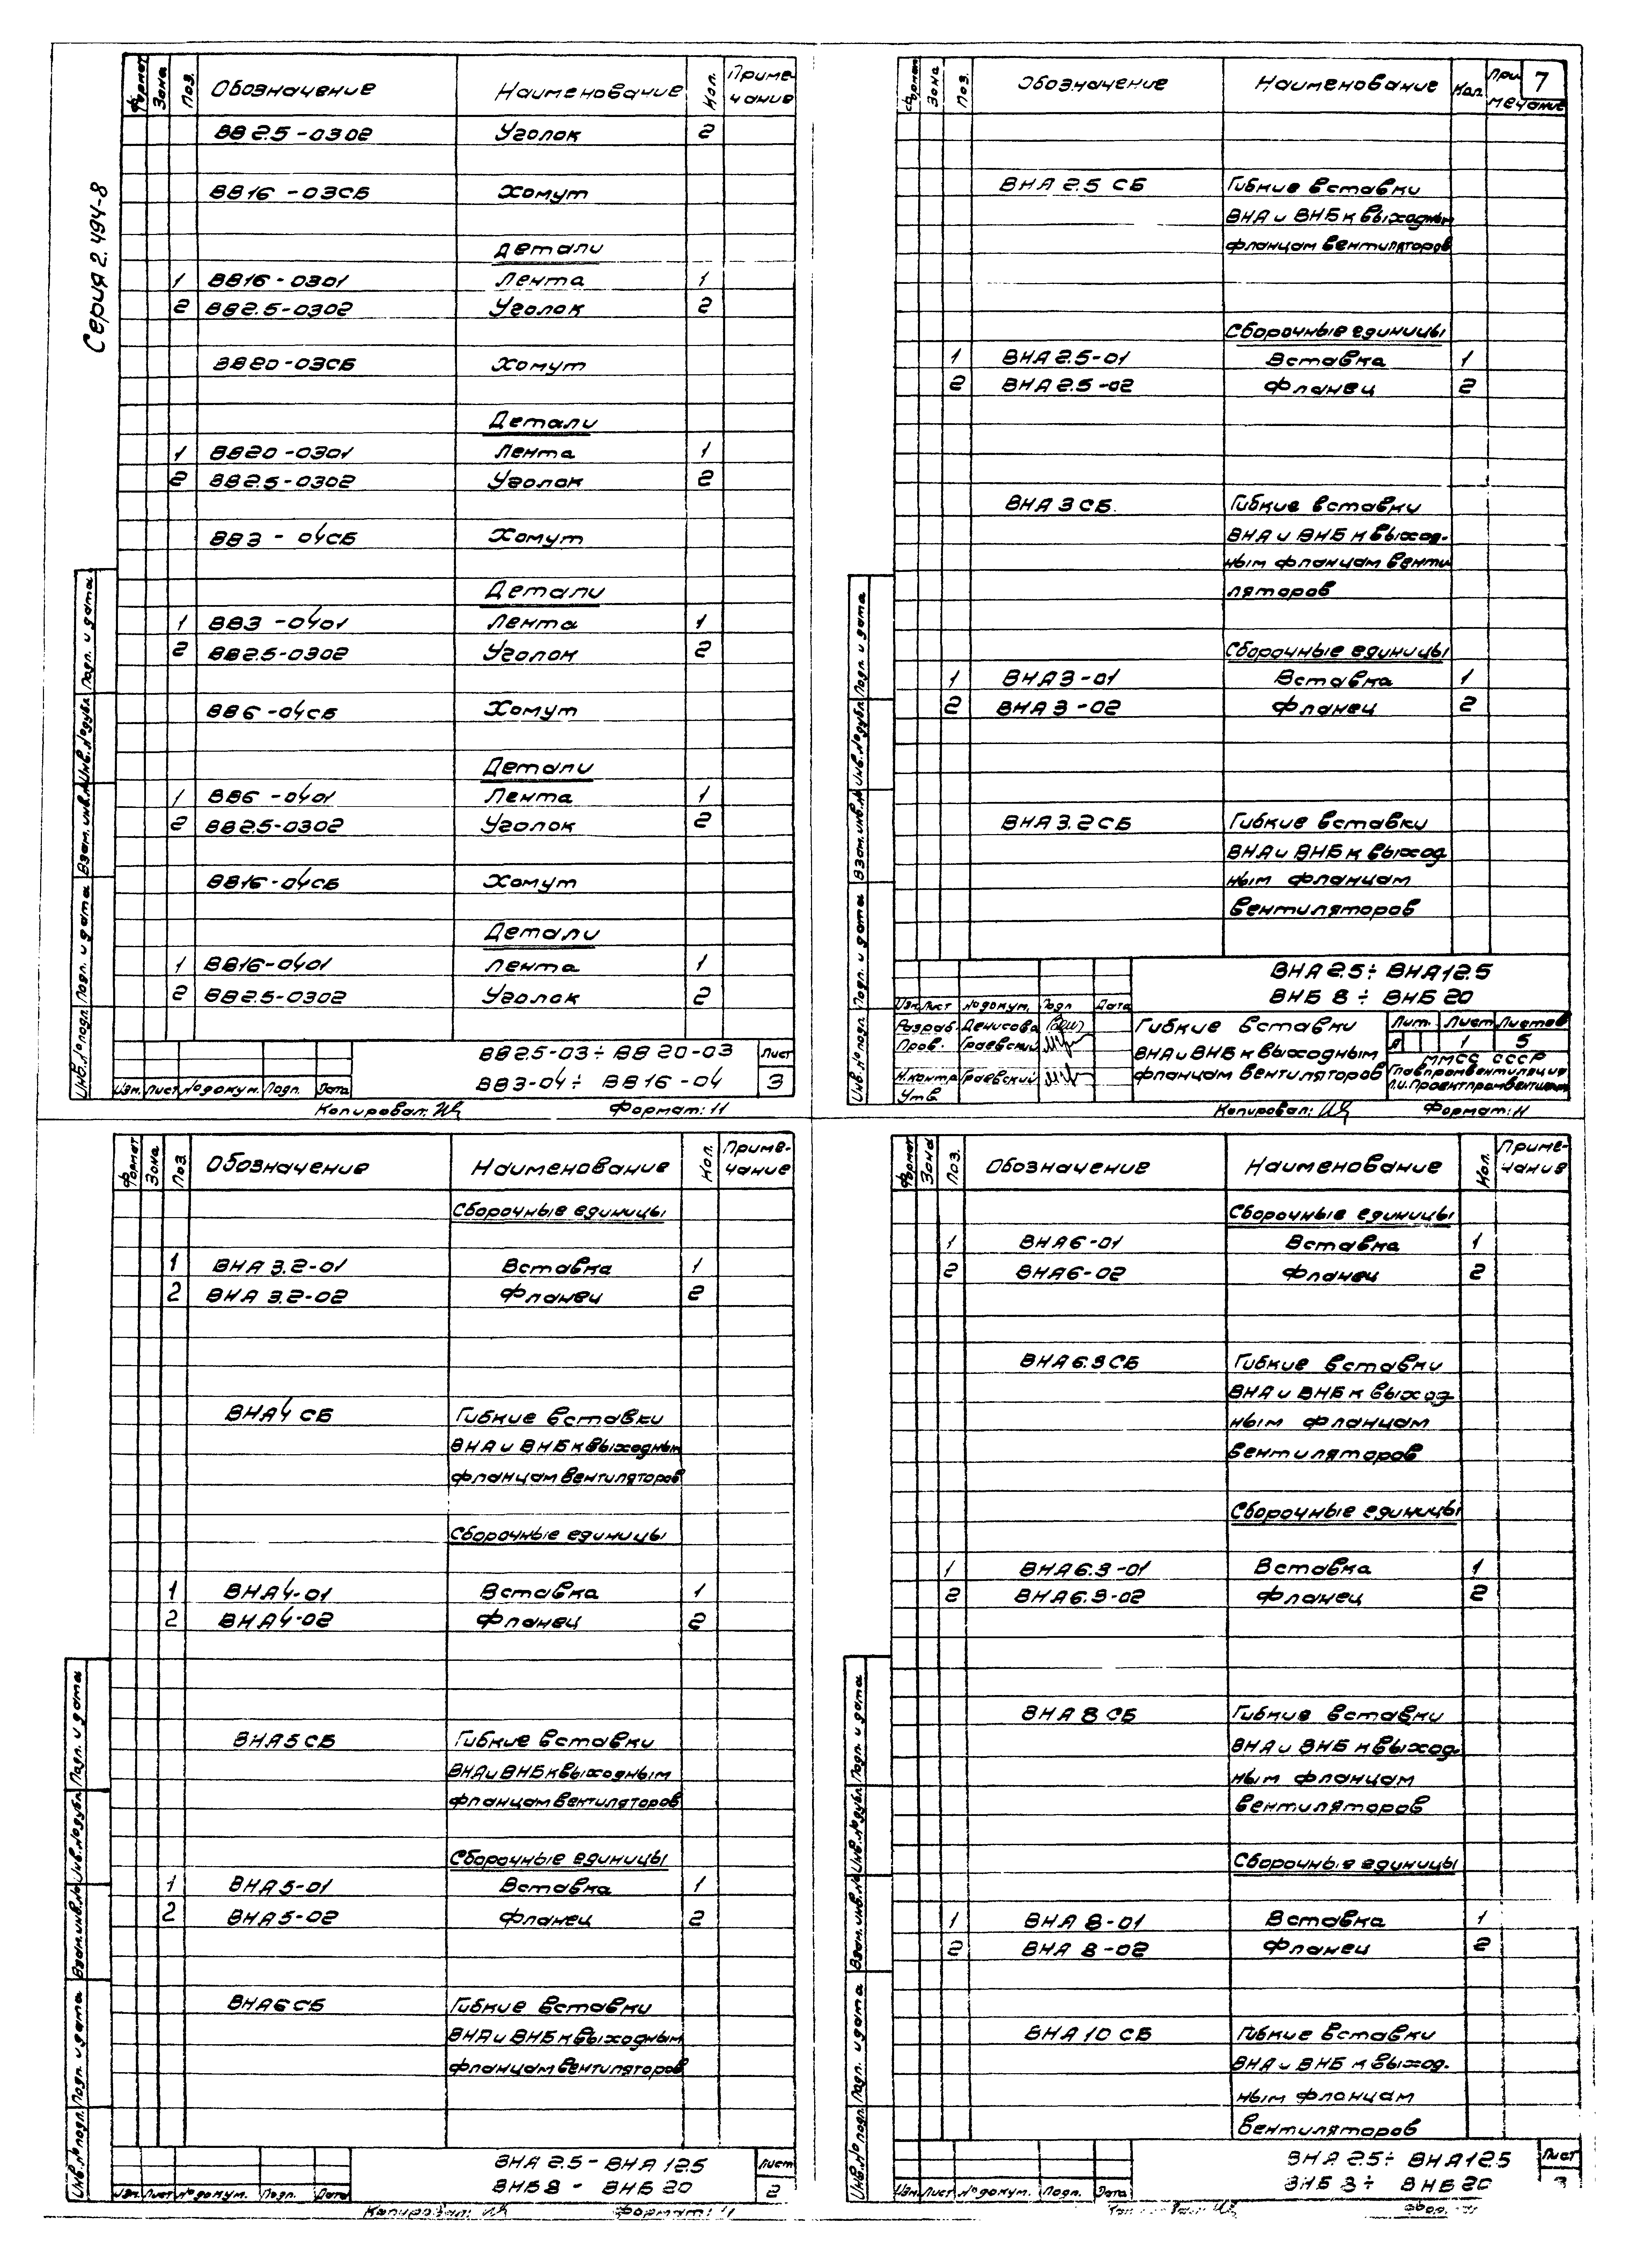 Серия 2.494-8
Формат Зона Поз. Обозначение Наименование Кол. Приме-
чание
ВВ2.5-0302 Уголок 2
ВВ16-03СБ Хомут
Детали
1 ВВ16-0301 Лента 1
2 ВВ2.5-0302 Уголок 2
ВВ20-03СБ Хомут
Детали
1 ВВ20-0301 Лента 1
2 ВВ2.5-0302 Уголок 2
ВВ3-04СБ Хомут
Детали
1 ВВ3-0401 Лента 1
2 ВВ2.5-0302 Уголок 2
ВВ6-04СБ Хомут
Детали
1 ВВ6-0401 Лента 1
2 ВВ2.5-0302 Уголок 2
ВВ16-04СБ Хомут
Детали
1 ВВ16-0401 Лента 1
2 ВВ2.5-0302 Уголок 2
Инв.№подл. Подп. и дата Взам.инв.№ Инв.№дубл. Подп. и дата
ВВ2.5-03÷ВВ20-03 Лист
ВВ3-04÷ВВ16-04 3
Изм. Лист №докум. Подп. Дата
Копировал: Формат: 11
Формат Зона Поз. Обозначение Наименование Кол. При 7
мечание
ВНА2.5СБ Гибкие вставки
ВНА и ВНБ к выходным
фланцам вентиляторов
Сборочные единицы
1 ВНА2.5-01 Вставка 1
2 ВНА2.5-02 Фланец 2
ВНА3СБ. Гибкие вставки
ВНА и ВНБ к выход-
ным фланцам венти
ляторов
Сборочные единицы
1 ВНА3-01 Вставка 1
2 ВНА3-02 Фланец 2
ВНА3.2СБ Гибкие вставки
ВНА и ВНБ к выход
ным фланцам
вентиляторов
Инв.№подл. Подп. и дата Взам.инв.№ Инв.№дубл. Подп. и дата
ВНА2.5÷ВНА12.5
ВНБ8÷ВНБ20
Изм. Лист №докум. Подп Дата
Разраб. Денисова
Пров. Граевский
Н.контр. Граевский
Утв
Гибкие вставки
ВНА и ВНБ к выходным
фланцам вентиляторов
Лит. Лист Листов
Р 1 5
ММСС СССР
Главпромвентиляция
Копировал: Формат: 11
Формат Зона Поз. Обозначение Наименование Кол. Приме-
чание
Сборочные единицы
1 ВНА3.2-01 Вставка 1
2 ВНА3.2-02 Фланец 2
ВНА4СБ Гибкие вставки
ВНА и ВНБ к выходным
фланцам вентиляторов
Сборочные единицы
1 ВНА4-01 Вставка 1
2 ВНА4-02 Фланец 2
ВНА5СБ Гибкие вставки
ВНА и ВНБ к выходным
фланцам вентиляторов
Сборочные единицы
1 ВНА5-01 Вставка 1
2 ВНА5-02 Фланец 2
ВНА6СБ Гибкие вставки
ВНА и ВНБ к выходным
фланцам вентиляторов
Инв.№подл. Подп. и дата Взам.инв.№ Инв.№дубл. Подп. и дата
ВНА2.5-ВНА12.5 Лист
ВНБ8-ВНБ20 2
Изм. Лист №докум. Подп. Дата
Копировал: Формат: 11
Формат Зона Поз. Обозначение Наименование Кол. Приме-
чание
Сборочные единицы
1 ВНА6-01 Вставка 1
2 ВНА6-02 Фланец 2
ВНА6.3СБ Гибкие вставки
ВНА и ВНБ к выход
ным фланцам
вентиляторов
Сборочные единицы
1 ВНА6.3-01 Вставка 1
2 ВНА6.3-02 Фланец 2
ВНА8СБ Гибкие вставки
ВНА и ВНБ к выход-
ным фланцам
вентиляторов
Сборочные единицы
1 ВНА8-01 Вставка 1
2 ВНА8-02 Фланец 2
ВНА10СБ Гибкие вставки
ВНА и ВНБ к выход-
ным фланцам
вентиляторов
Инв.№подл. Подп. и дата Взам.инв.№ Инв.№дубл. Подп. и дата
ВНА2.5÷ВНА12.5 Лист
ВНБ8÷ВНБ20 3
Изм. Лист №докум. Подп. Дата